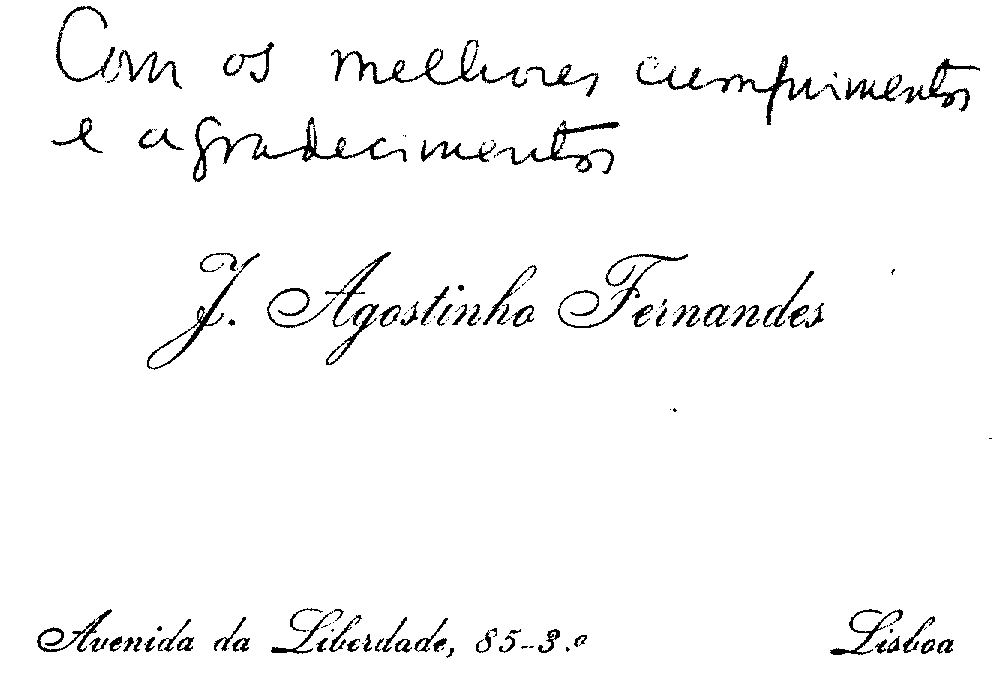 Com os melhores cumprimentos
e agradecimentos
J. Agostinho Fernandes
Avenida da Liberdade, 85-3.º
Lisboa